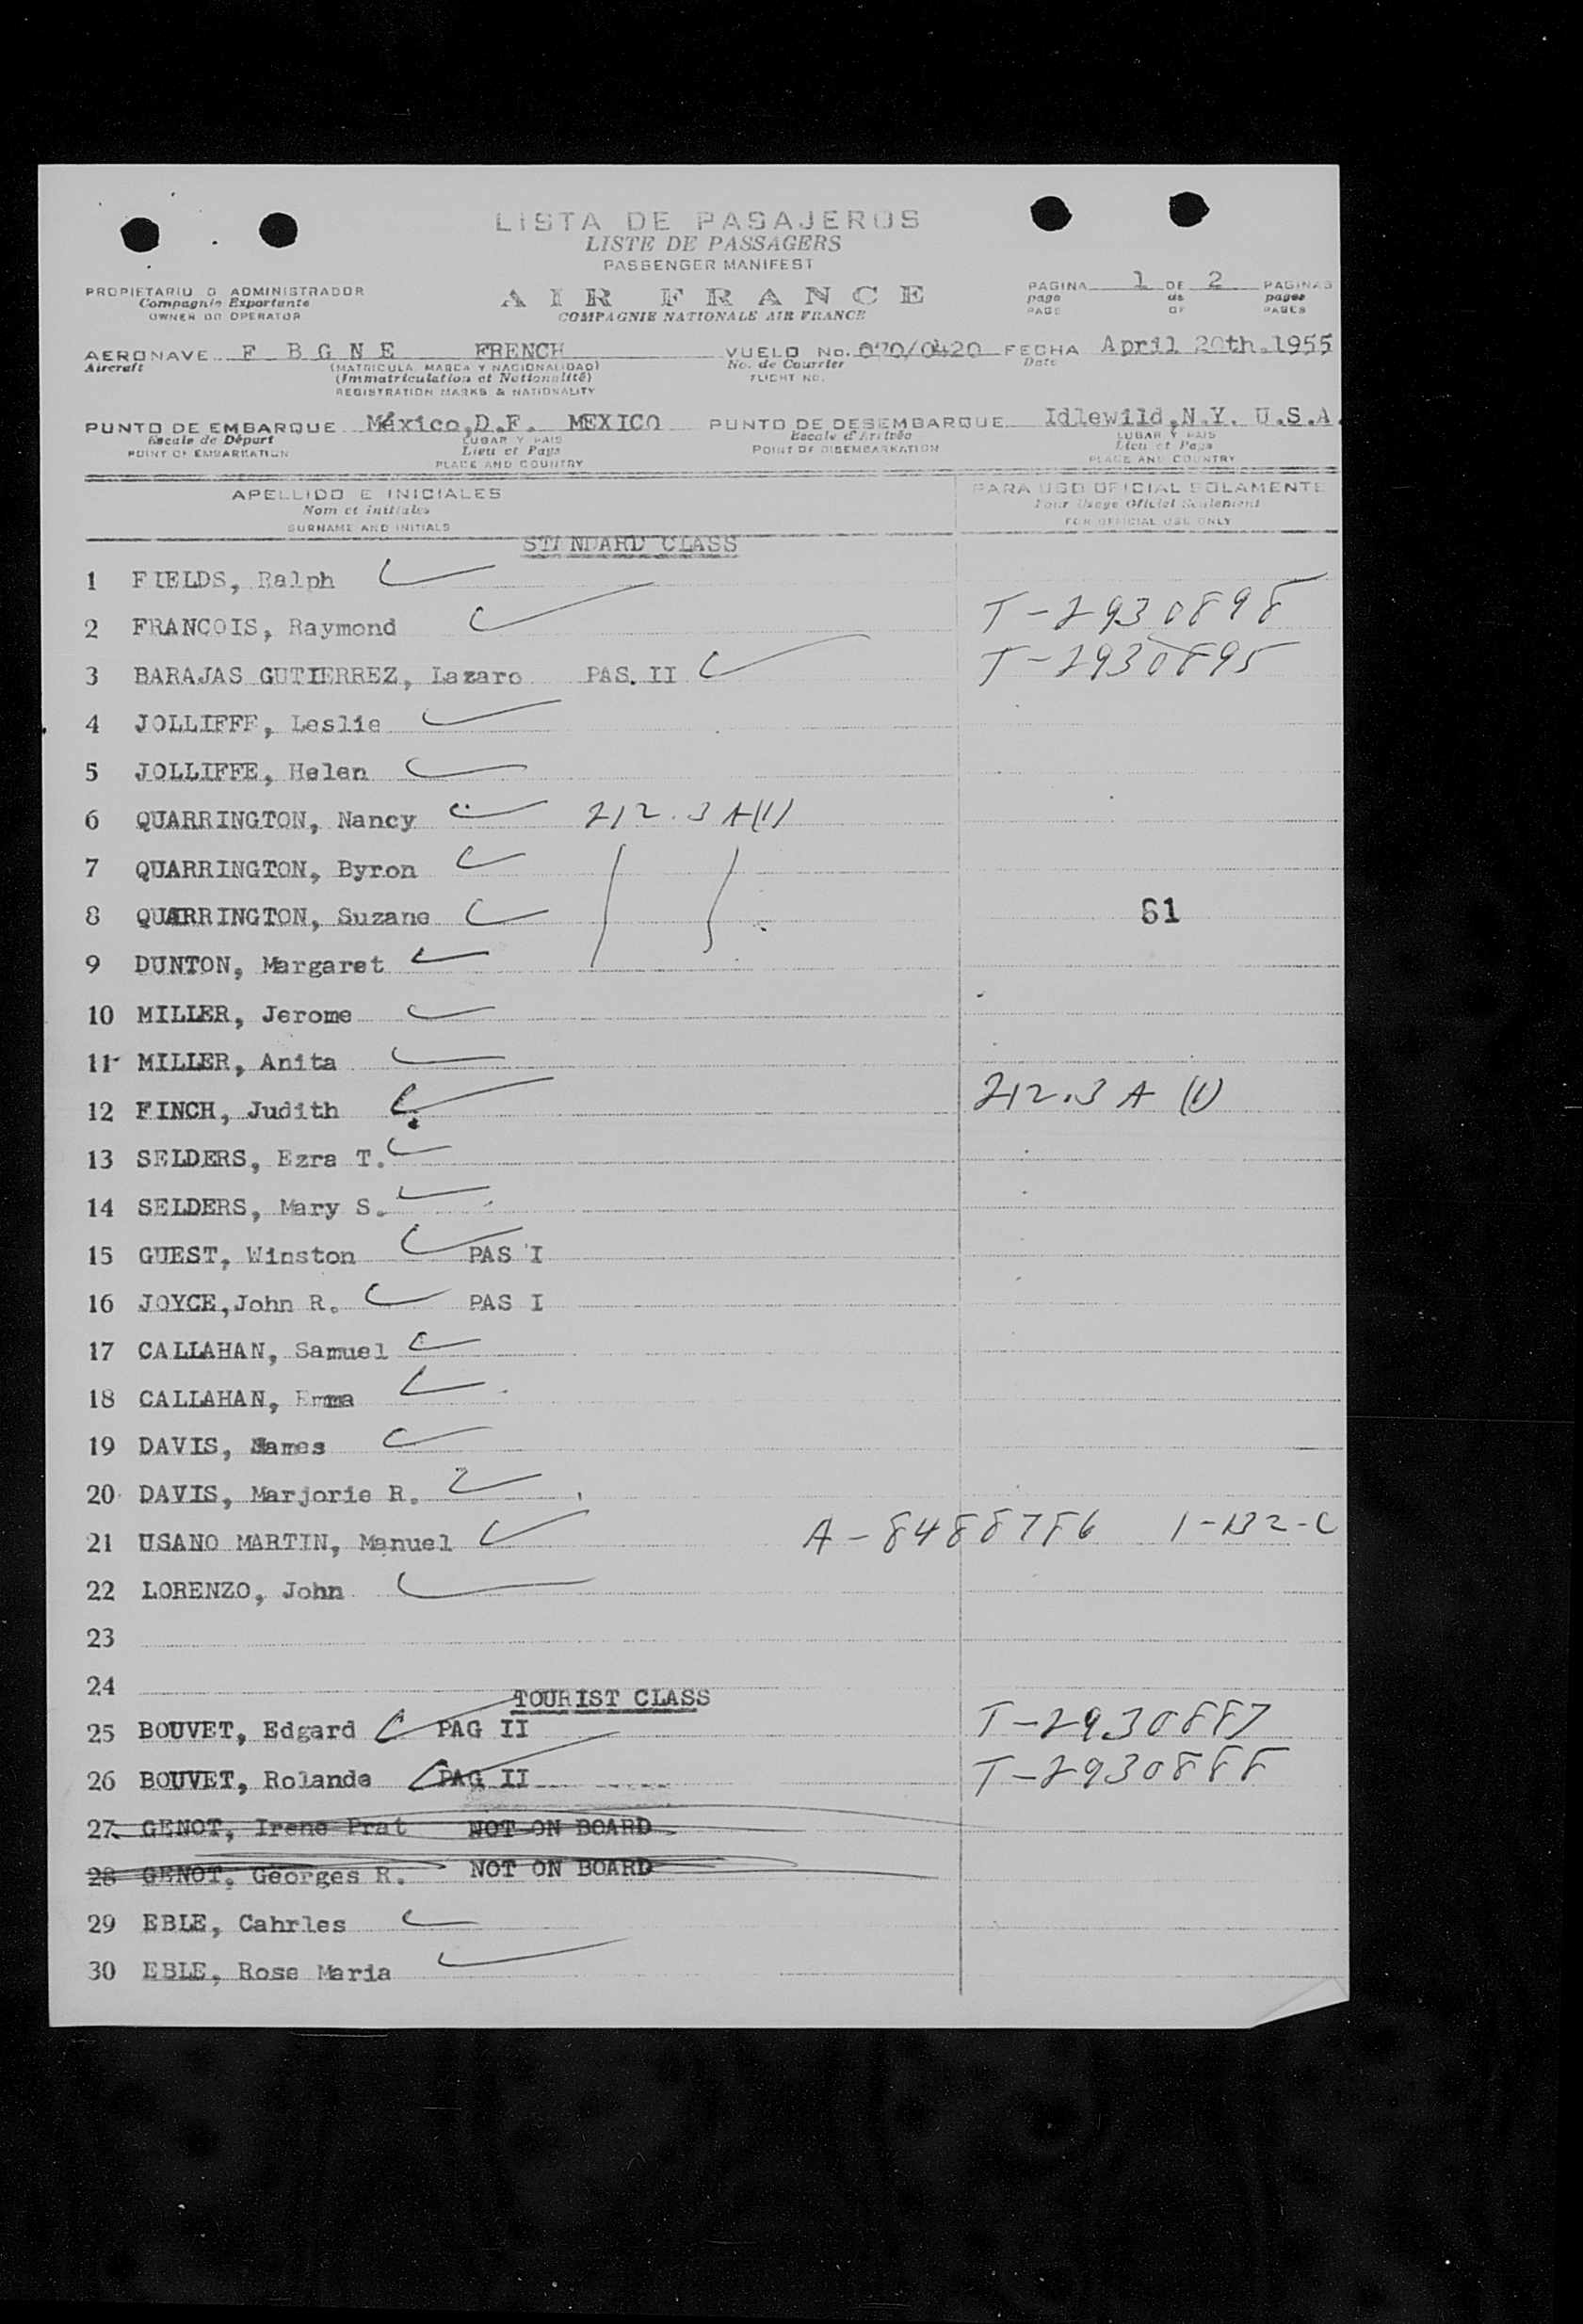 LISTA DE PASAJEROS
LISTE DE PASSAGERS
PASSENGER MANIFEST
PROPIETARIO O ADMINISTRADOR
Compagnie Exportante
OWNER OR OPERATOR
AIR FRANCE
COMPAGNIE NATIONALE AIR FRANCE
PAGINA 1 DE 2 PAGINAS
page de pages
PAGE OF PAGES
AERONAVE F B G N E FRENCH VUELO No. 070/0420 FECHA April 20th.1955
Aircraft (MATRICULA, MARCA Y NACIONALIDAD) No. de Courrier Date
(Immatriculation et Nationalité) FLIGHT NO.
REGISTRATION MARKS & NATIONALITY
PUNTO DE EMBARQUE México,D.F. MEXICO PUNTO DE DESEMBARQUE Idlewild,N.Y. U.S.A.
Escale de Départ LUGAR Y PAIS Escale d'Arrivée LUGAR Y PAIS
POINT OF EMBARKATION Lieu et Pays POINT OF DISEMBARKATION Lieu et Pays
PLACE AND COUNTRY PLACE AND COUNTRY
APELLIDO E INICIALES PARA USO OFICIAL SOLAMENTE
Nom et initiales Pour Usage Officiel Seulement
SURNAME AND INITIALS FOR OFFICIAL USE ONLY
STANDARD CLASS
1 FIELDS, Ralph
2 FRANCOIS, Raymond T-2930898
3 BARAJAS GUTIERREZ, Lazaro PAS. II T-2930895
4 JOLLIFFE, Leslie
5 JOLLIFFE, Helen
6 QUARRINGTON, Nancy 212.3 A(1)
7 QUARRINGTON, Byron
8 QUARRINGTON, Suzane 61
9 DUNTON, Margaret
10 MILLER, Jerome
11 MILLER, Anita
12 FINCH, Judith 212.3 A (1)
13 SELDERS, Ezra T.
14 SELDERS, Mary S.
15 GUEST, Winston PAS I
16 JOYCE,John R. PAS I
17 CALLAHAN, Samuel
18 CALLAHAN, Emma
19 DAVIS, James
20 DAVIS, Marjorie R.
21 USANO MARTIN, Manuel A-8488786 1-132-C
22 LORENZO, John
23
24
TOURIST CLASS
25 BOUVET, Edgard PAG II T-2930887
26 BOUVET, Rolande PAG II T-2930888
27 GENOT, Irene Prat NOT ON BOARD
28 GENOT, Georges R. NOT ON BOARD
29 EBLE, Cahrles
30 EBLE, Rose Maria